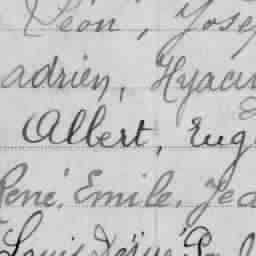 Léon, Josep
adrien, Hyacin
Albert, Eug
René, Emile, Jea
Louis Désiré